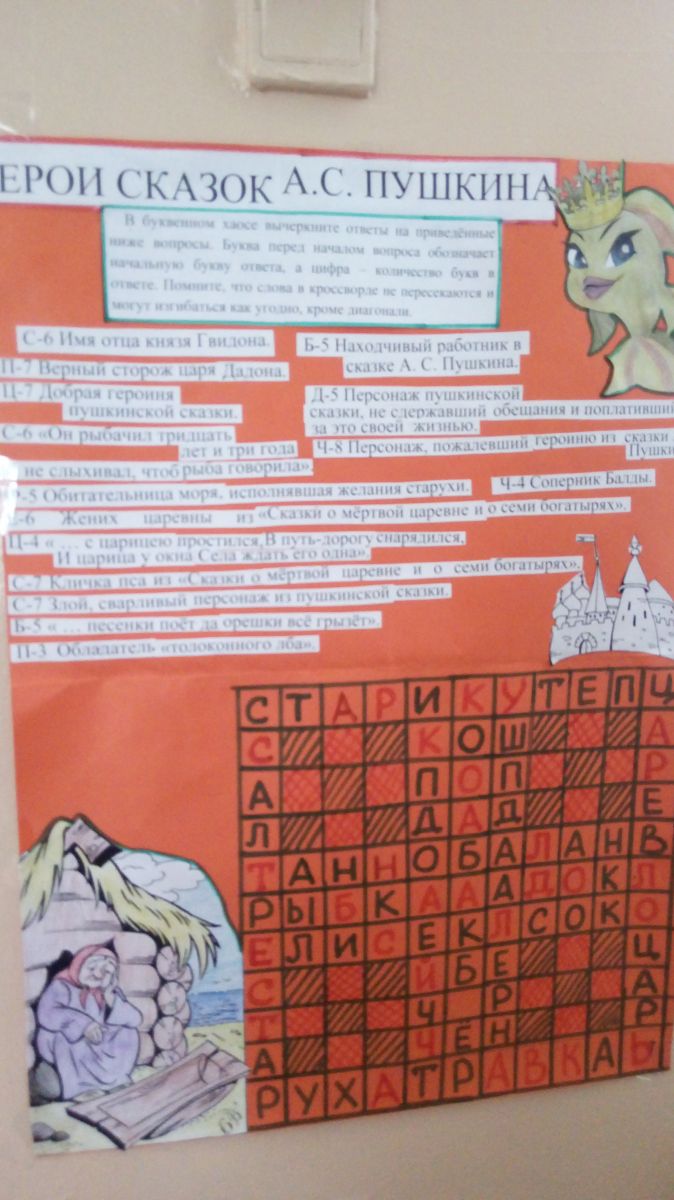 ЕРОИ СКАЗОК А.С. ПУШКИНА
В буквенном хаосе вычеркните ответы на приведённые
ниже вопросы. Буква перед началом вопроса обозначает
начальную букву ответа, а цифра – количество букв в
ответе. Помните, что слова в кроссворде не пересекаются и
могут изгибаться как угодно, кроме диагонали.
С-6 Имя отца князя Гвидона.
Б-5 Находчивый работник в
сказке А. С. Пушкина.
П-7 Верный сторож царя Дадона.
Ц-7 Добрая героиня
пушкинской сказки.
Д-5 Персонаж пушкинской
сказки, не сдержавший обещания и поплативший
за это своей жизнью.
С-6 «Он рыбачил тридцать
лет и три года
не слыхивал, чтоб рыба говорила».
Ч-8 Персонаж, пожалевший героиню из сказки
Пушки
Р-5 Обитательница моря, исполнявшая желания старухи.
Ч-4 Соперник Балды.
Е-6 Жених царевны из «Сказки о мёртвой царевне и о семи богатырях».
Ц-4 « … с царицею простился, В путь-дорогу снарядился,
И царица у окна Села ждать его одна».
С-7 Кличка пса из «Сказки о мёртвой царевне и о семи богатырях».
С-7 Злой, сварливый персонаж из пушкинской сказки.
Б-5 « … песенки поёт да орешки всё грызёт».
П-3 Обладатель «толоконного лба».
С Т А Р И К У Т Е П Ц
С К О Ш А
А П О П Р
Л Д А Д Е
Т А Н Н О Б А Л А Н В
Р Ы Б К А А А Д О К Л
Е Л И С Е К Л С О К О
С Й Б Е Ц
Т Ч Р А
А Ч Е Н Р
Р У Х А Т Р А В К А Ь